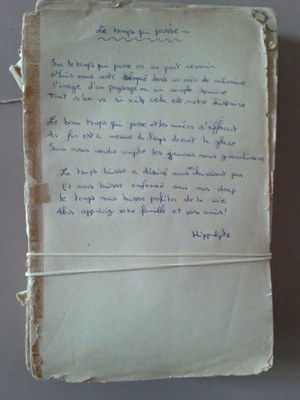 Le temps qui passe...
Sur le temps qui passe on ne peut revenir
Mais nous reste dans un coin de mémoire
L'image d'un paysage ou un simple sourire
Tout s'en va si vite cela est notre histoire
Le beau temps qui passe et les années s'effacent
Au fur et à mesure le temps devient la glace
Sans nous rendre compte les gammes nous grandissons
Le temps laisse à désirer nous choisissant pas
Et nous laisse enfermé sous nos draps
Le temps nous laisse profiter de la vie
Alors appréciez votre famille et vos amis!
Hippolyte